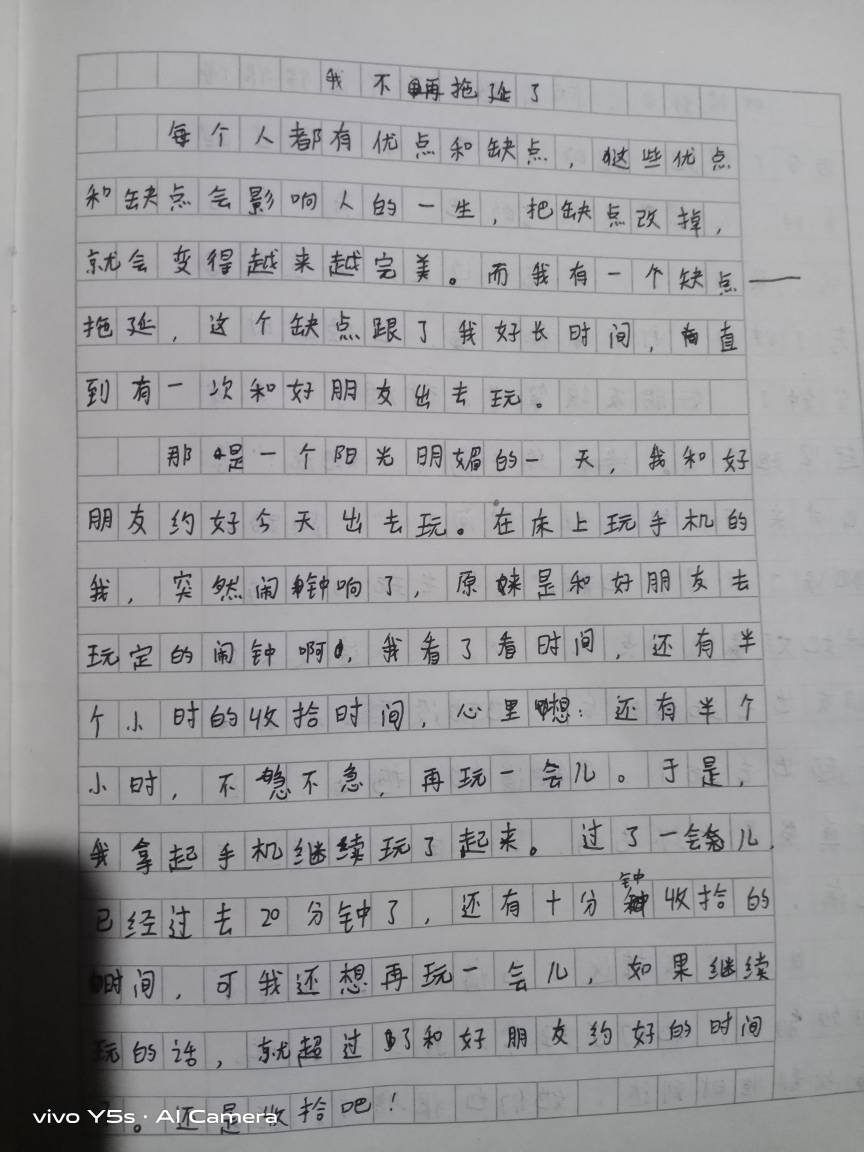 我不再拖延了
每个人都有优点和缺点，这些优点
和缺点会影响人的一生，把缺点改掉，
就会变得越来越完美。而我有一个缺点——
拖延，这个缺点跟了我好长时间，直
到有一次和好朋友出去玩。
那是一个阳光明媚的一天，我和好
朋友约好今天出去玩。在床上玩手机的
我，突然闹钟响了，原来是和好朋友去
玩定的闹钟啊，我看了看时间，还有半
个小时的收拾时间，心里想：还有半个
小时，不急不急，再玩一会儿。于是，
我拿起手机继续玩了起来。过了一会儿，
已经过去20分钟了，还有十分钟收拾的
时间，可我还想再玩一会儿，如果继续
玩的话，就超过了和好朋友约好的时间
。还是收拾吧！
vivo Y5s · AI Camera